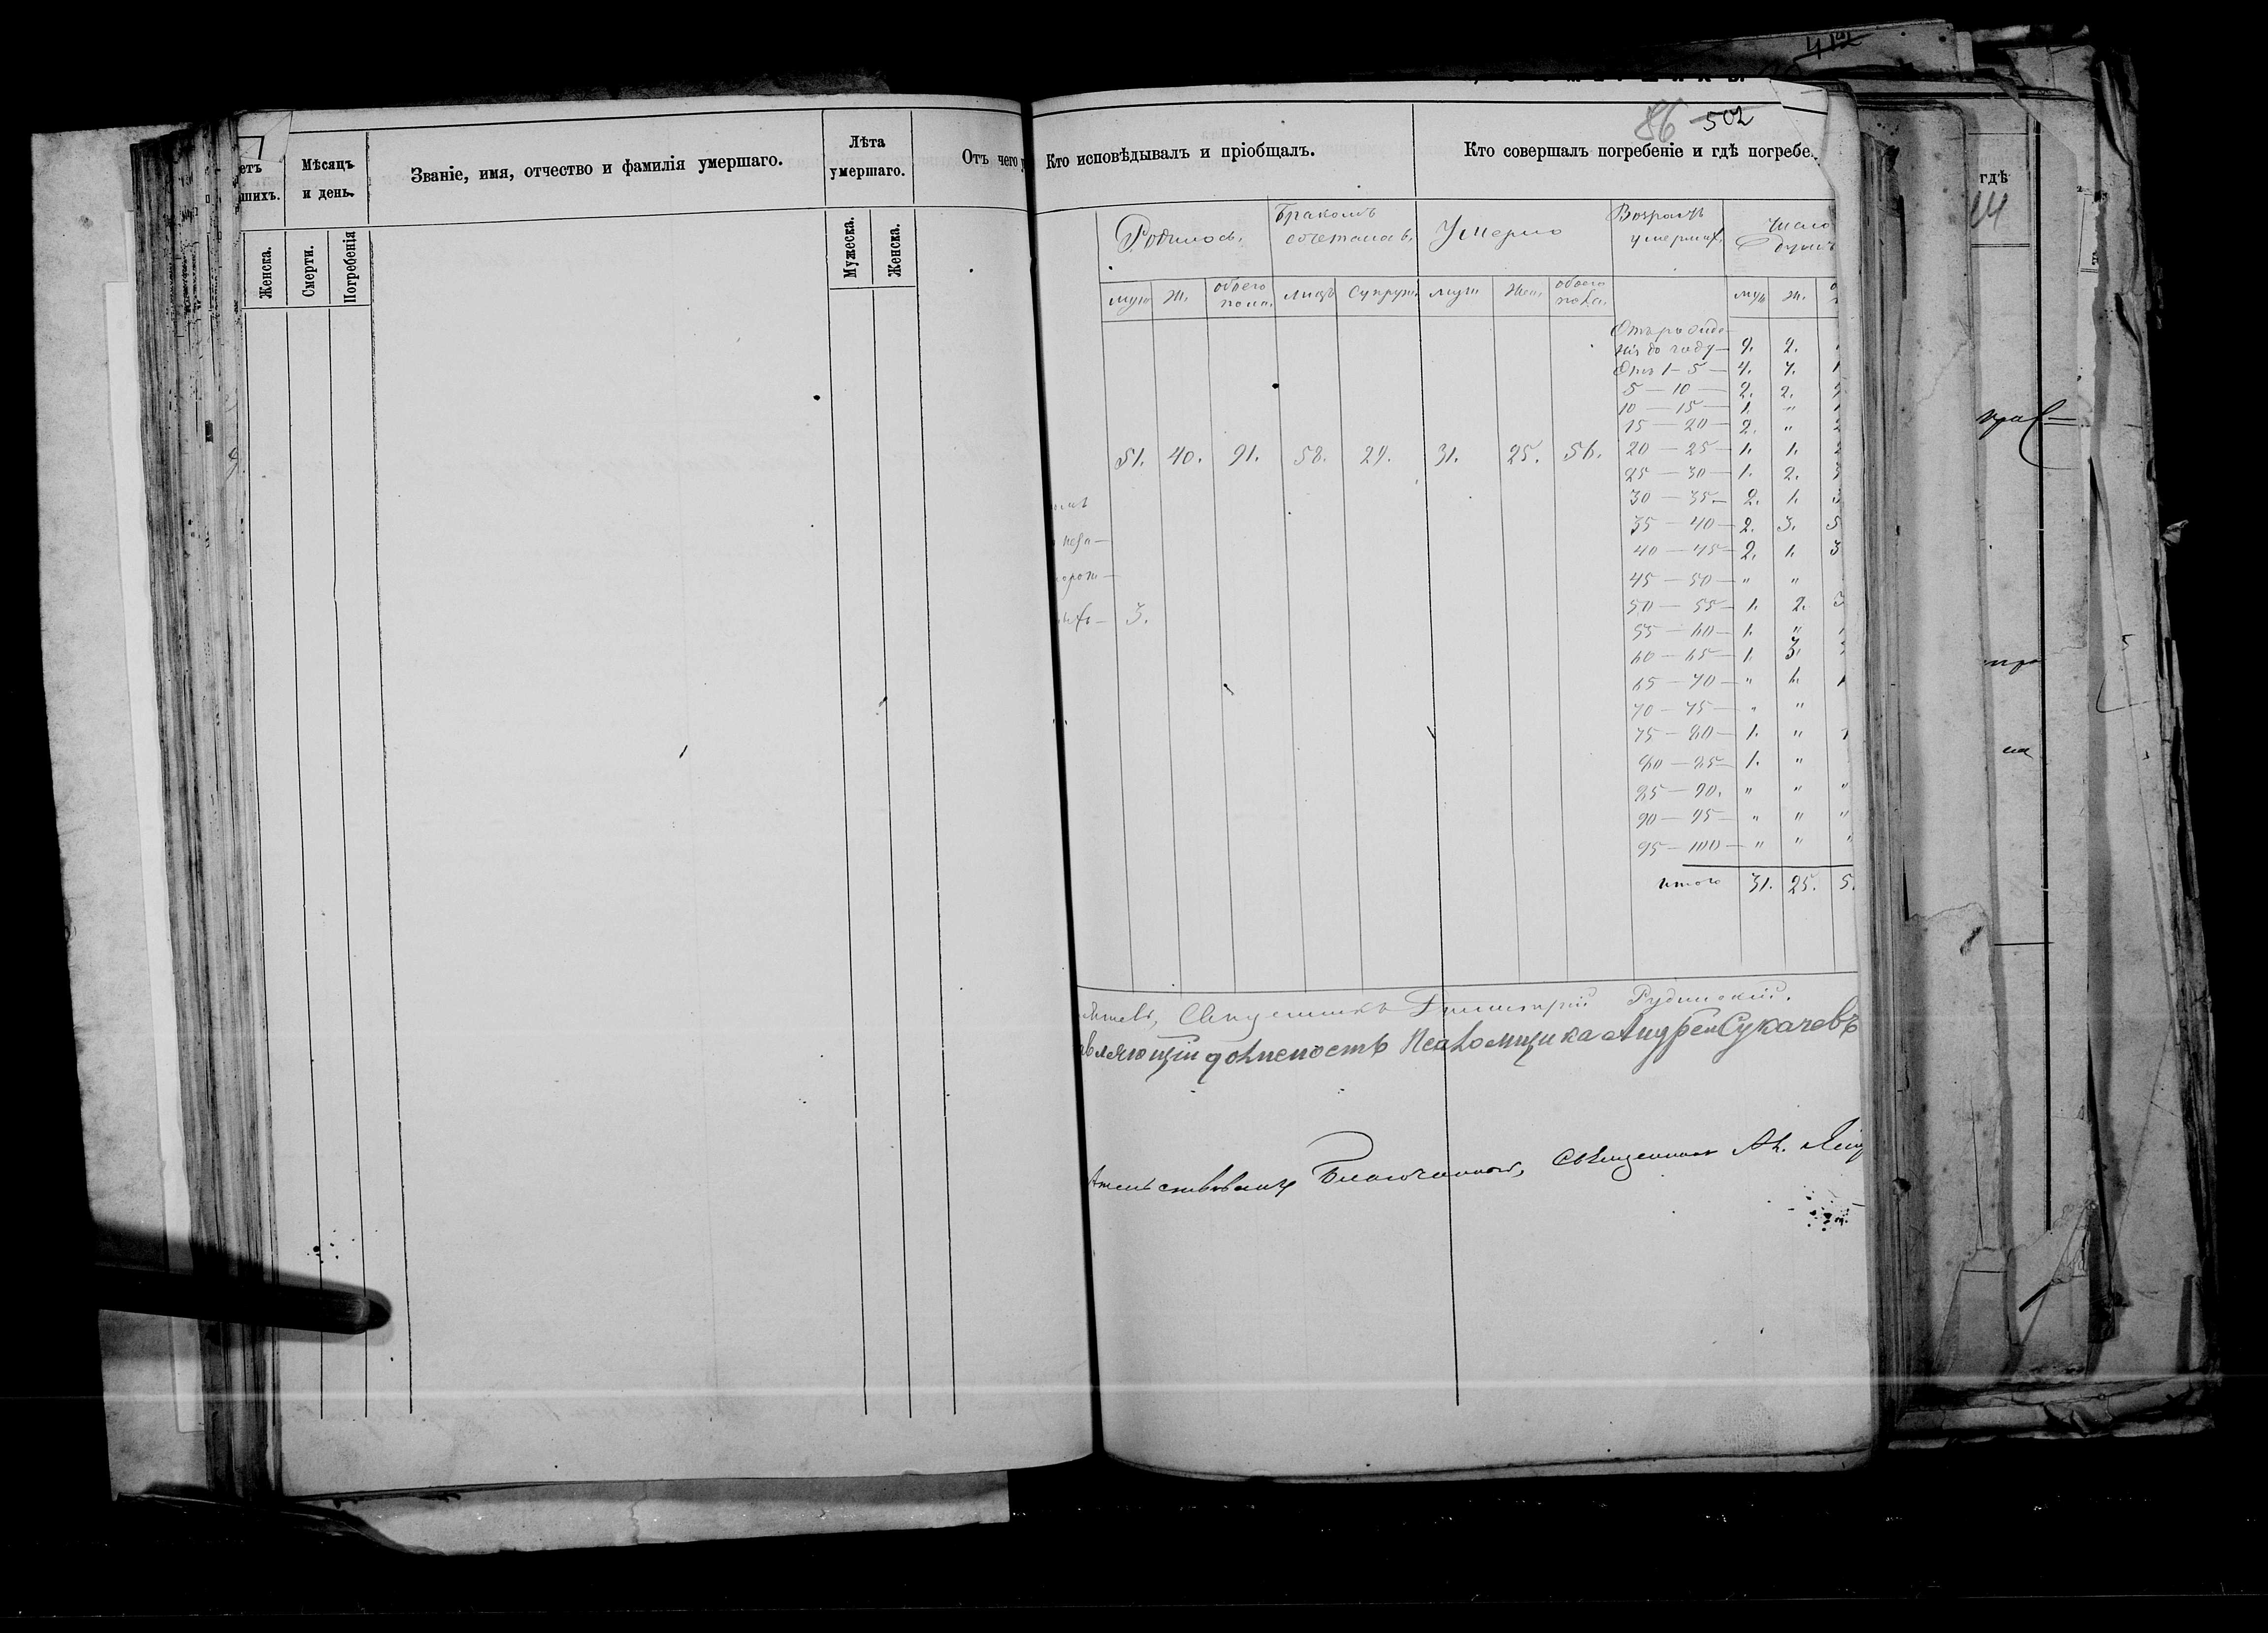 412
86 502
Мѣсяцъ
и день.
Званіе, имя, отчество и фамилія умершаго.
Лѣта
умершаго.
Отъ чего
Женска.
Смерти.
Погребенія
Мужеска.
Женска.
Кто исповѣдывалъ и пріобщалъ.
Кто совершалъ погребеніе и гдѣ погребе
гдѣ
Родилось.
Бракомъ
сочеталось.
Умерло
Возрастъ
умершихъ.
Число
душъ
муж ж. обоего пола. лицъ супруж. муж жен. обоего пола. муж ж.
Отъ рожде
нія до году — 9. 2.
Отъ 1 — 5 — 4. 7. 1
5 — 10 — 2. 2.
10 — 15 — 1. "
15 — 20 — 2. " 2
51. 40. 91. 58. 29. 31. 25. 56. 20 — 25 — 1. 1. 2
25 — 30 — 1. 2. 3
30 — 35 — 2. 1. 3
35 — 40 — 2. 3. 5
40 — 45 — 2. 1. 3
45 — 50 — " "
3. 50 — 55 — 1. 2. 3
55 — 60 — 1. "
60 — 65 — 1. 3.
65 — 70 — " 1. 1
70 — 75 — " "
75 — 80 — 1. " 1
80 — 85 — 1. "
85 — 90. " " "
90 — 95 — " " "
95 — 100 — " " "
Итого 31. 25. 5
Священникъ Димитрій Рудинскій.
вляющій должность Псаломщика Андрей Сукачевъ
Благочинный, Священникъ